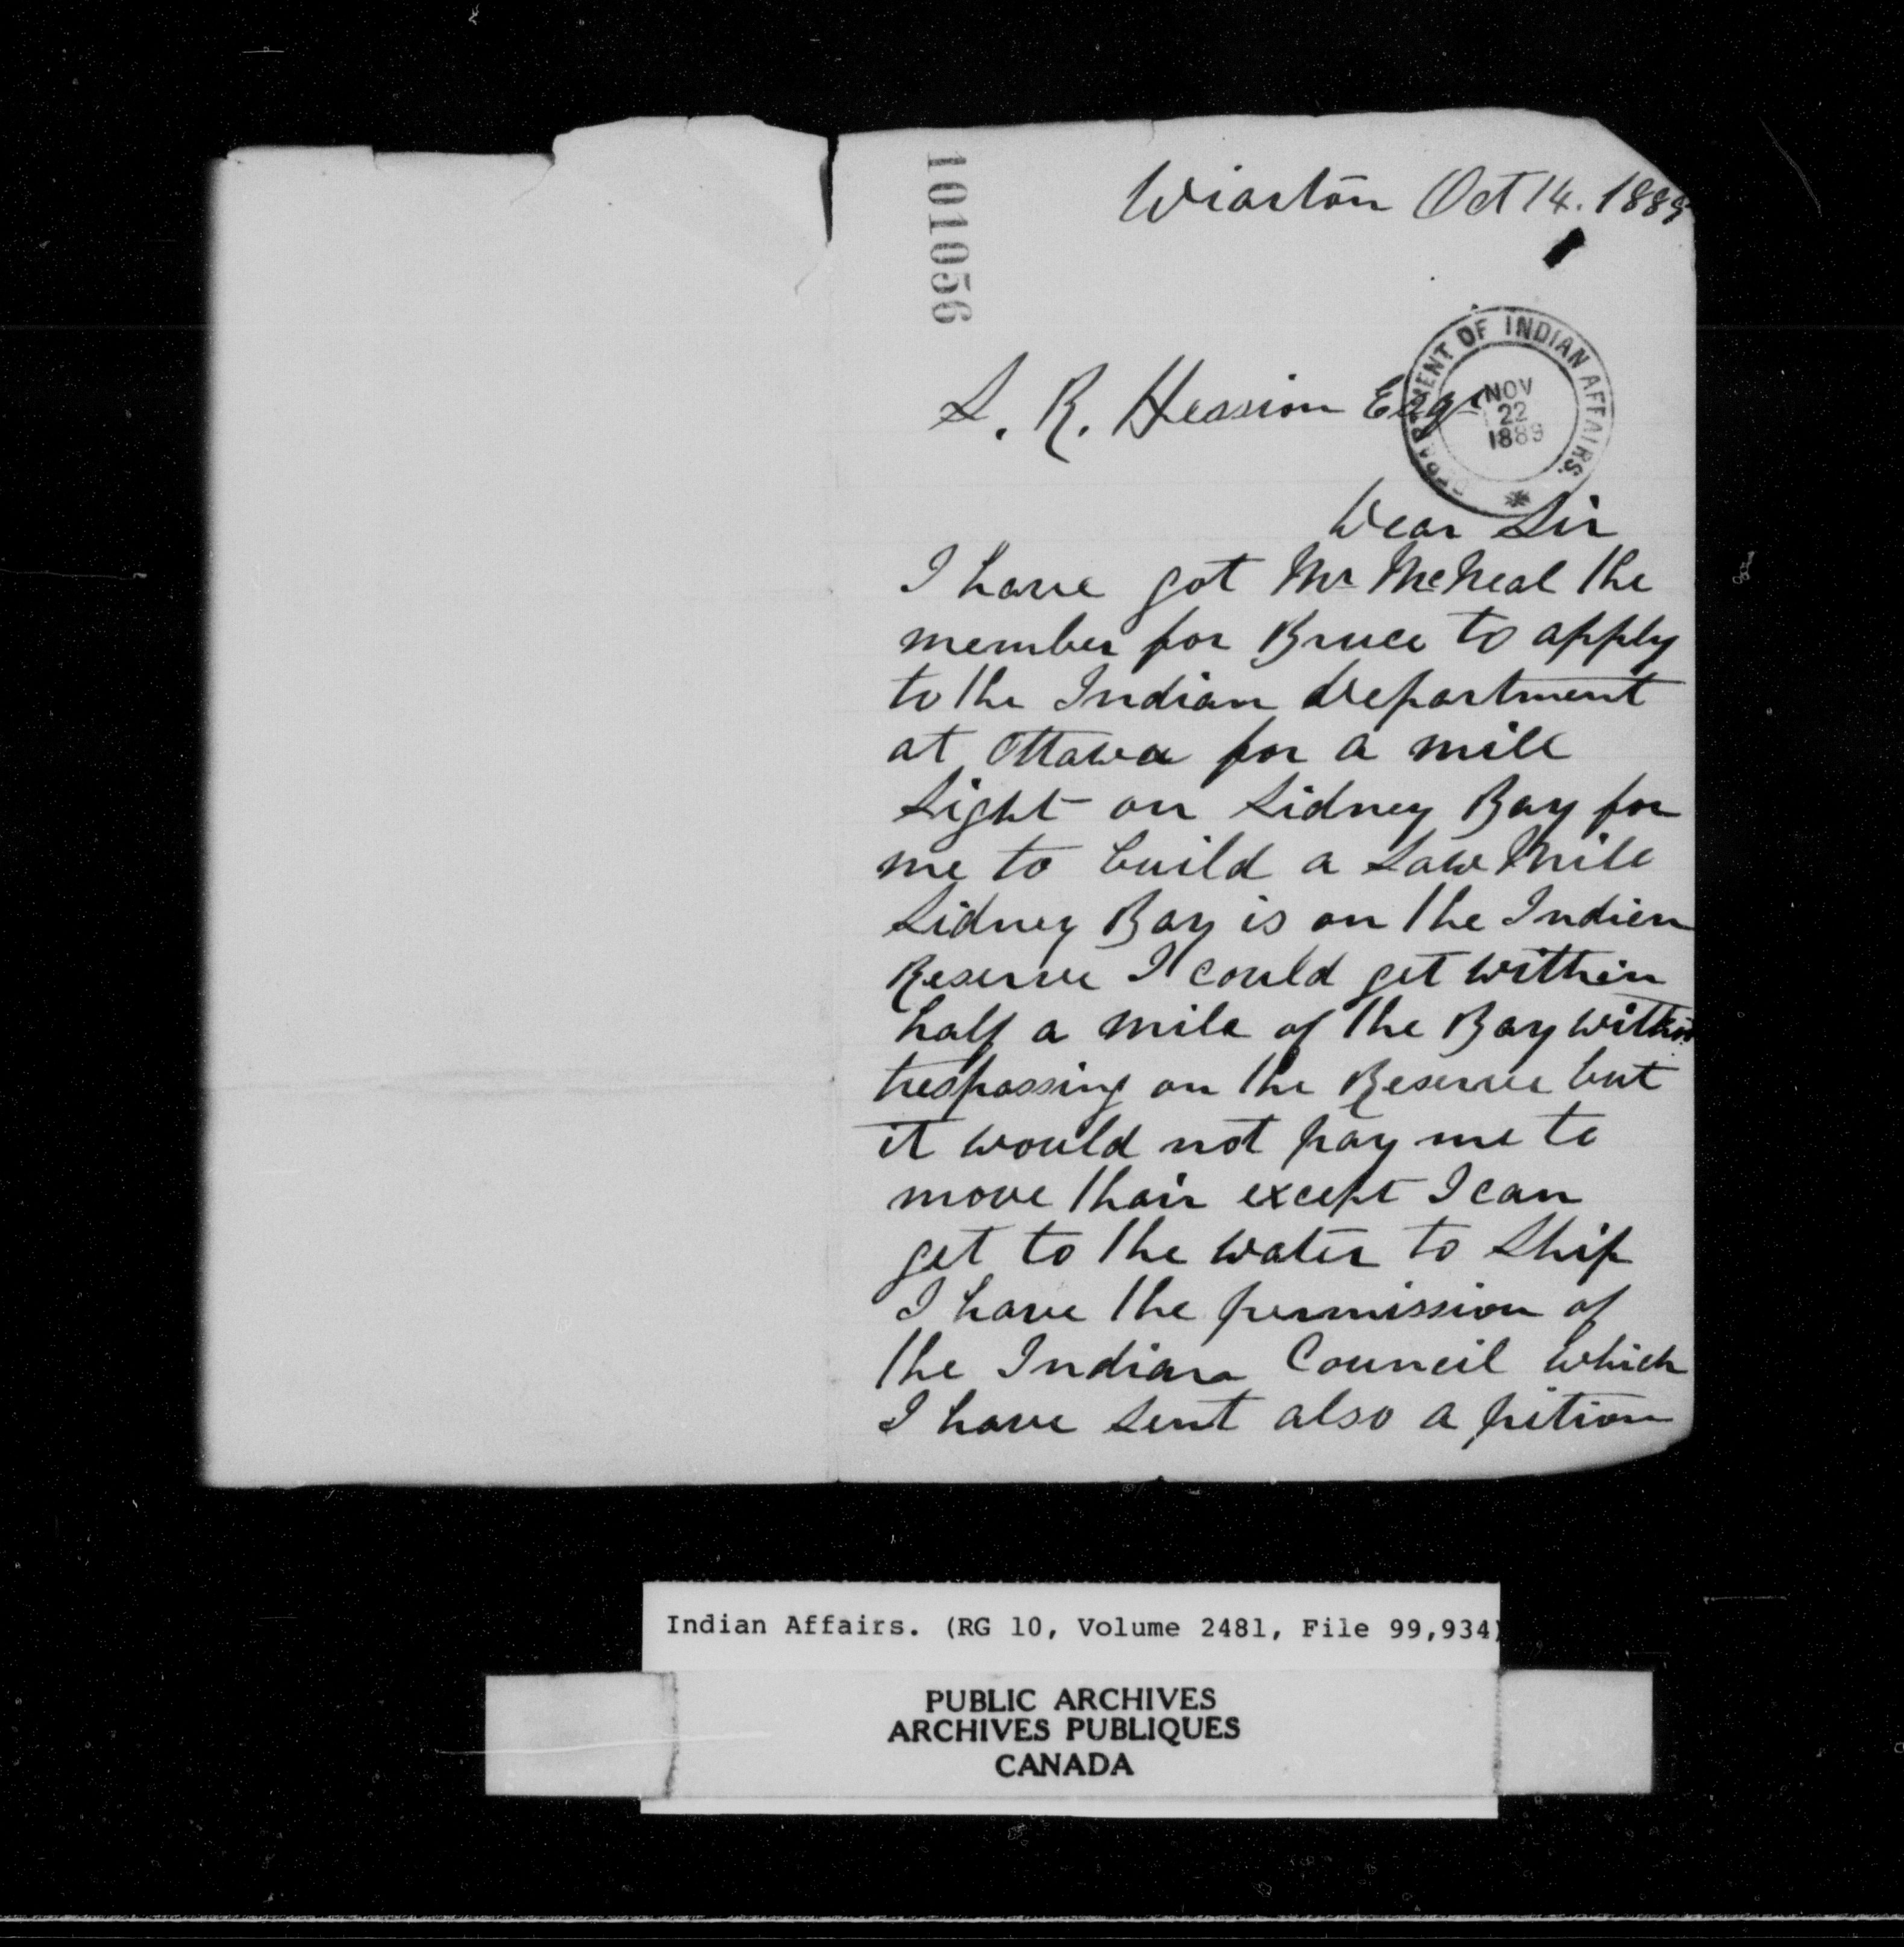 101056
Wiarton Oct 14. 1889
DEPARTMENT OF INDIAN AFFAIRS.
NOV
22
1889
S. R. Hession Esqr
Dear Sir
I have got Mr McNeal the
member for Bruce to apply
to the Indian Department
at Ottawa for a mill
Sight on Sidney Bay for
me to build a Saw Mill
Sidney Bay is on the Indien
Reserve I could get within
half a mile of the Bay without
trespassing on the Reserve but
it would not pay me to
move thair except I can
get to the water to Ship
I have the permission of
the Indian Council which
I have sent also a pition
Indian Affairs. (RG 10, Volume 2481, File 99,934)
PUBLIC ARCHIVES
ARCHIVES PUBLIQUES
CANADA